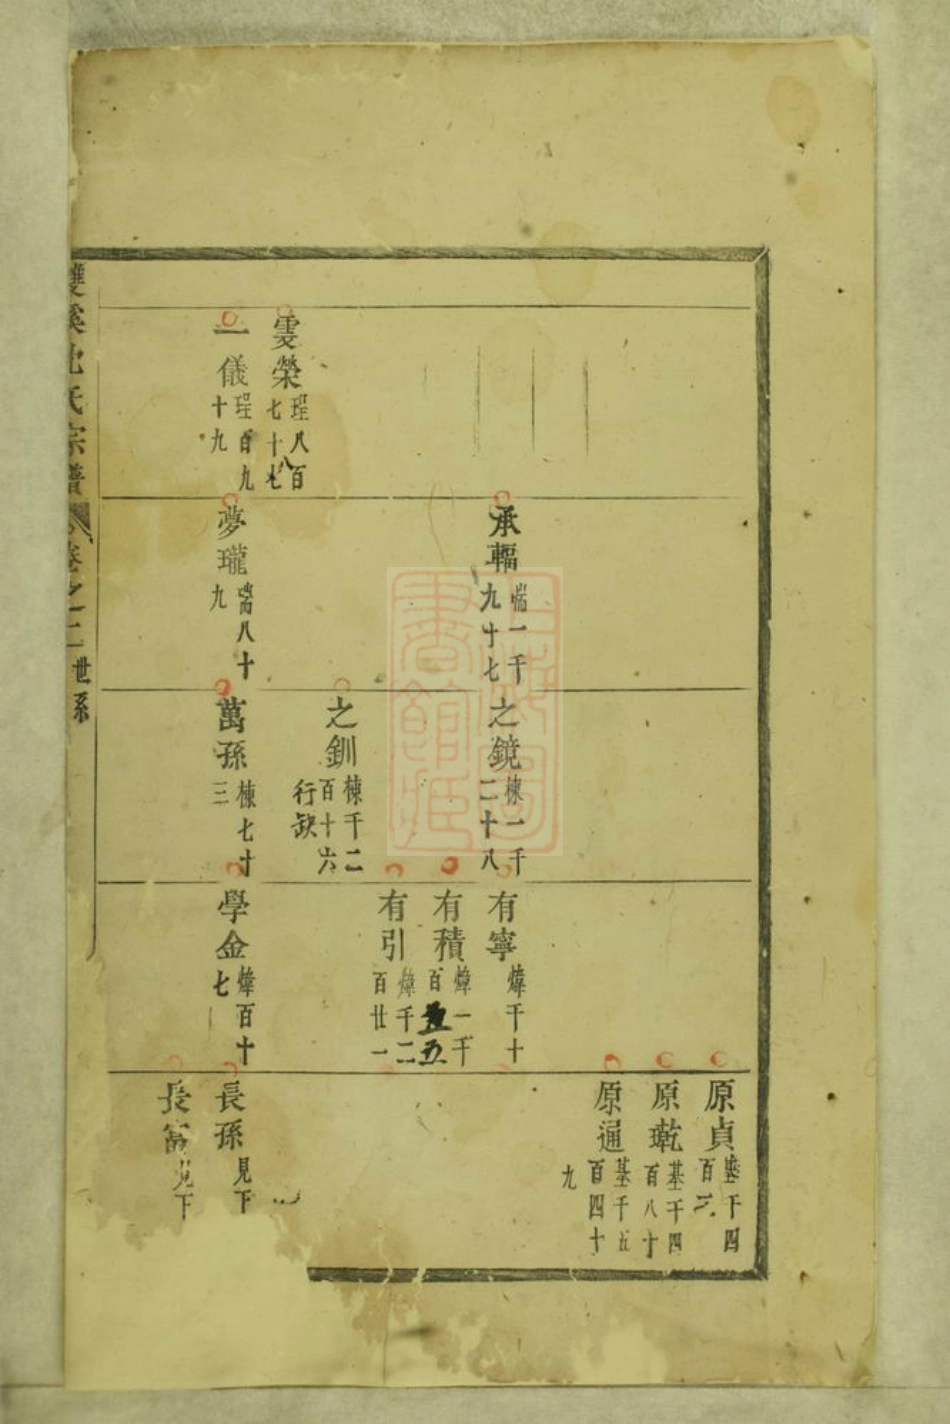 雯榮 珵八百七十八
一儀 珵百九十九
承輻 耑一千九十七
夢瓏 耑八十九
之鏡 棟一千二十八
之釧 棟千二百十六 行缺
萬孫 棟七十三
有寧 煒千十
有積 煒一千百五
有引 煒千二百廿一
學金 煒百十七
原貞 基千四百二
原乾 基千四百八十
原通 基千五百四十九
長孫 見下
長富 見下
雙溪沈氏宗譜 卷之二 世系
上海圖書館藏